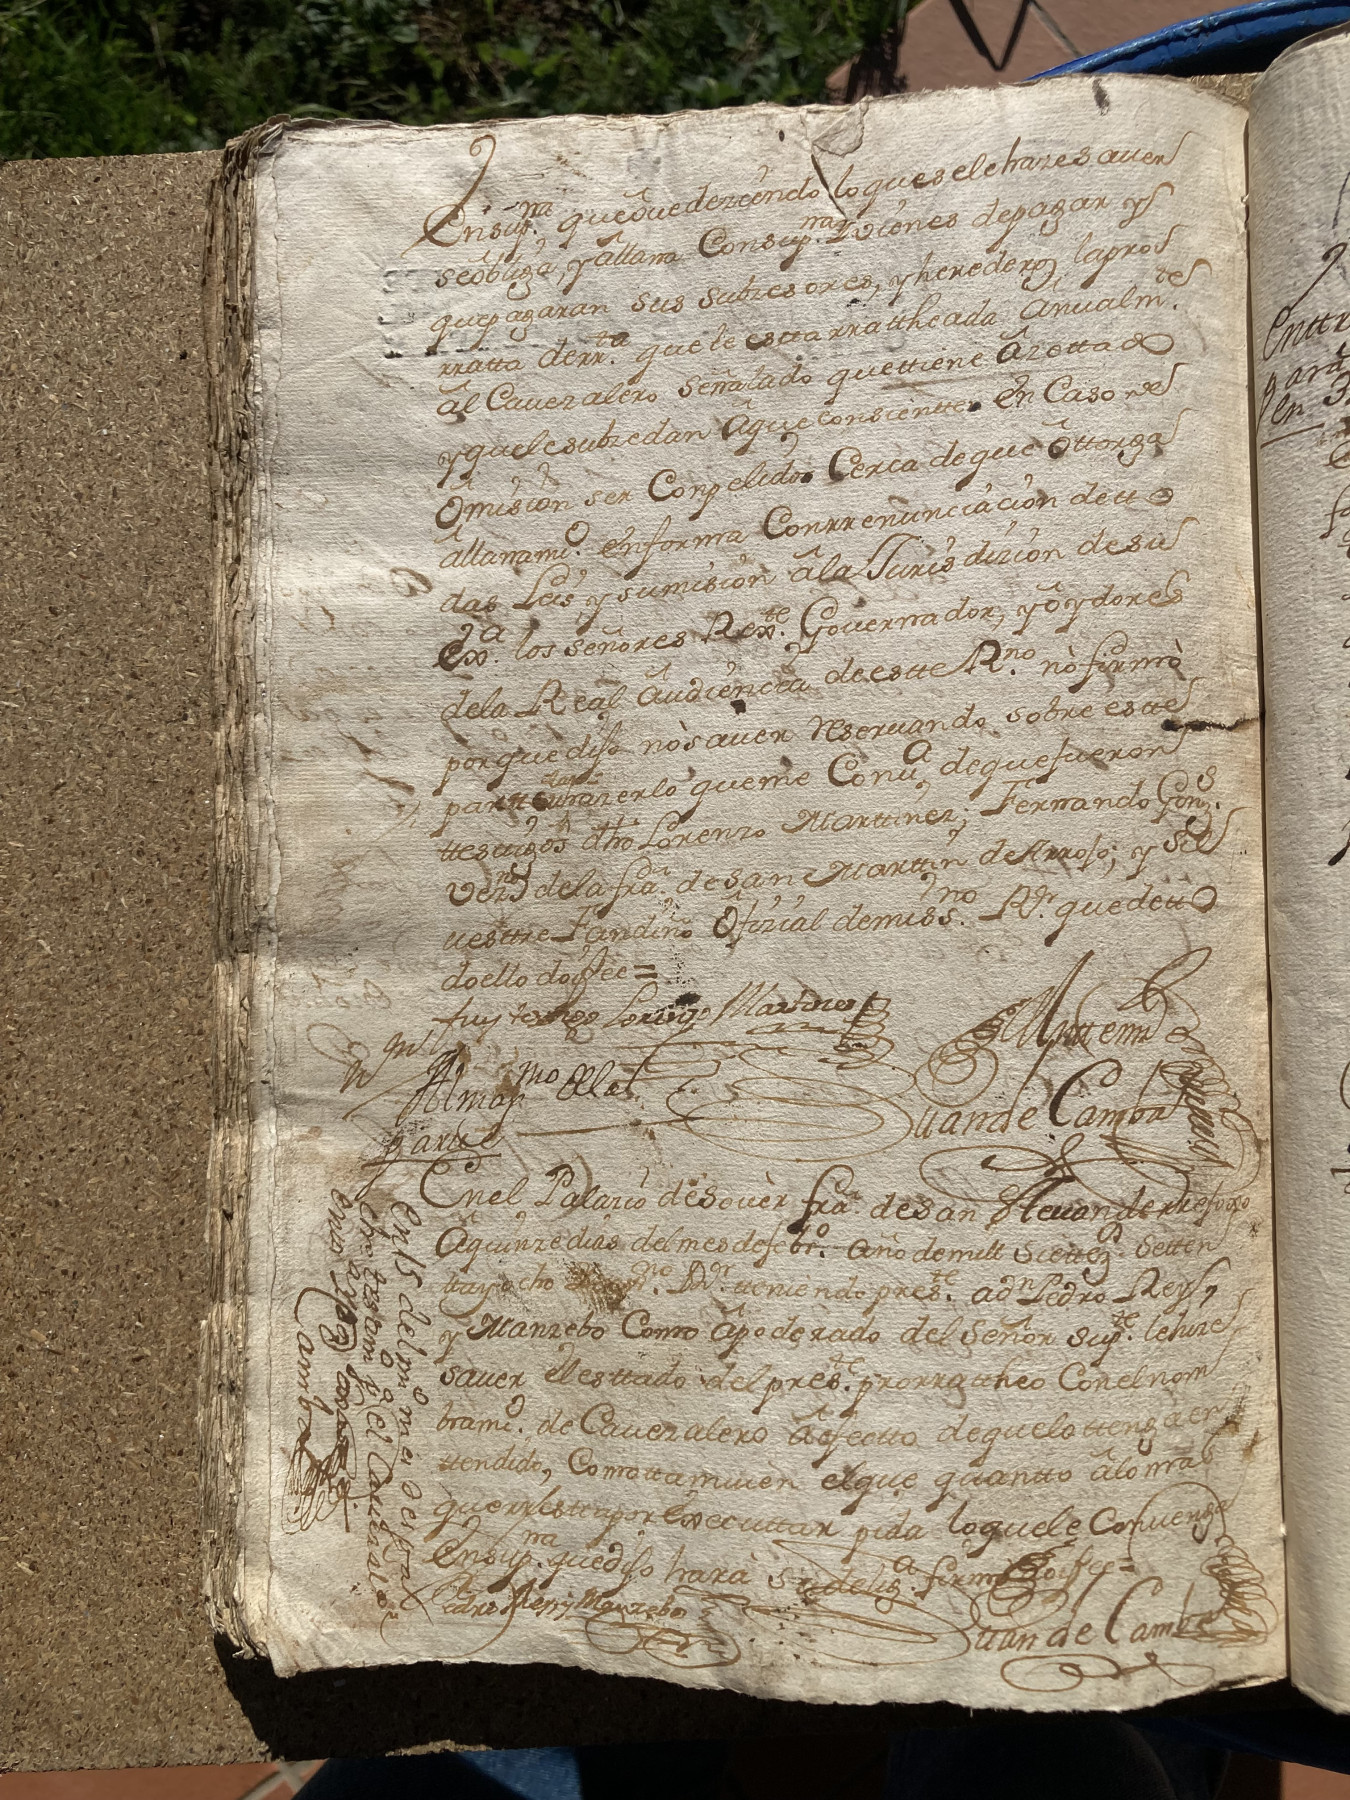 En sup.na que ôuedeziendo lo que se le haze sauer
se ôbliga, y âllana Con sup.na y vienes de pagar y
que pagaran sus subzesores, y herederos, la pror
rratta de rr.ta que le estta rrattheada Anualm.te
âl Cauezalero señalado que ttiene âzetta do
y que le subzedan âque consientte en Caso de
Omisiòn ser Conpelido Cerca de que Ôttorga
allanami.o en forma Con rrenunciaciòn de tto
das Leis y sumisiòn âla Jurisdiziòn de su
Ex.a los señores Rex.te Governador, y ôydores
dela Real Âudiencia de estte R.no nò firmò
porque dijo nò sauer reseruando sobre estte
parttiCular hazer lo que me Conu.a de que fueron
ttesttigos dho Lorenzo Marttinez; Fernando Gonz.s
vez.s dela fra. de san Marttin de Arrojo; y Sil
uesttre Fandiño Ôfizial de mi ss.no R.r que de tto
do ello doi fee =
fuy testigo Lorenzo Martinez
Antemi
Juan de Camba
En el Palazio de souèr fra. de san Steuan de rrefojo
Â quinze dias del mes de febr.o año de mill Settez.s Setten
tta y ocho Yo ss.no R.r tteniendo pres.te a d.n Pedro Rey,
y Manzebo Como âpoderado del Señor sup.te le hize
sauer el esttado del pres.te prorrattheo Con el nom
brami.o de Cauezalero â efectto de que lo ttenga en
ttendido, Como ttamuien el que quantto âlo mas
que rrestta por êxecuttar pida lo que le Conuenga
En sup.na que dijo harà su delig.a firmò doi fee =
Pedro Rey y Manzebo
Juan de Camba
En 15 del mismo mes
Camba